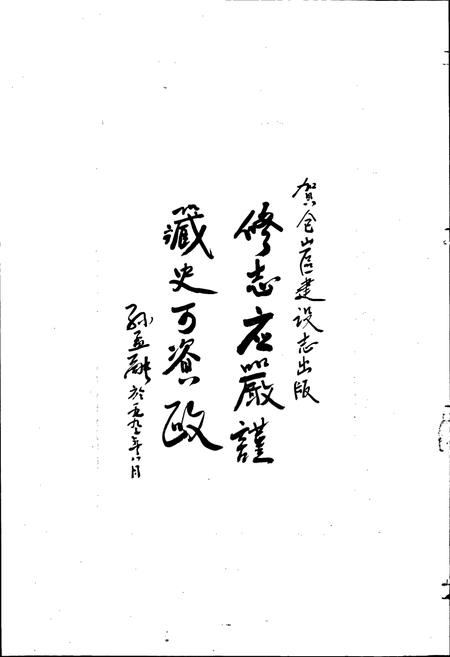 贺仓山区建设志出版
修志应嚴謹
藏史可資政
孙孟融 於一九九一年八月